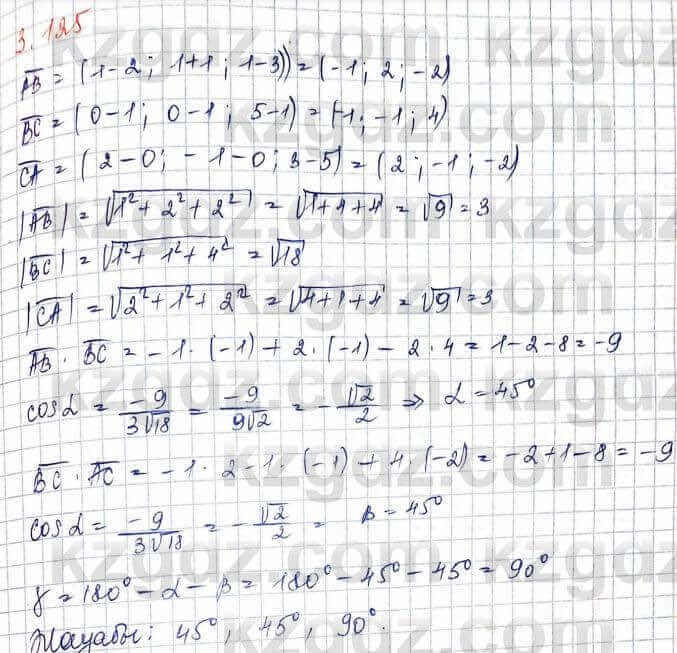 3.125
AB = (1-2; 1+1; 1-3) = (-1; 2; -2)
BC = (0-1; 0-1; 5-1) = (-1; -1; 4)
CA = (2-0; -1-0; 3-5) = (2; -1; -2)
|AB| = √1² + 2² + 2² = √1+4+4 = √9 = 3
|BC| = √1² + 1² + 4² = √18
|CA| = √2² + 1² + 2² = √4+1+4 = √9 = 3
AB · BC = -1 · (-1) + 2 · (-1) - 2 · 4 = 1-2-8 = -9
cos α = -9/3√18 = -9/9√2 = -√2/2 ⇒ α = 45°
BC · AC = -1 · 2 - 1 · (-1) + 4 · (-2) = -2+1-8 = -9
cos α = -9/3√18 = -√2/2 = β = 45°
γ = 180° - α - β = 180° - 45° - 45° = 90°
Жауабы: 45°, 45°, 90°.